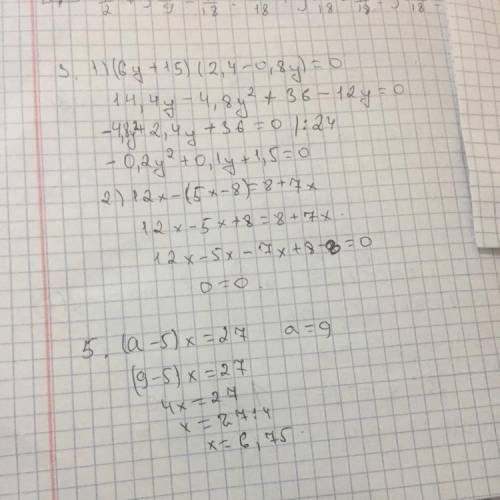 3. 1) (6y+15) (2,4-0,8y) = 0
14,4y - 4,8y² + 36 - 12y = 0
-4,8y²+2,4y+36=0 /:24
-0,2y²+0,1y+1,5=0
2) 12x-(5x-8)=8+7x
12x-5x+8=8+7x.
12x-5x-7x+8-8=0
0=0.
5. (a-5)x=27 a=9
(9-5)x=27
4x=27
x=27:4
x=6,75